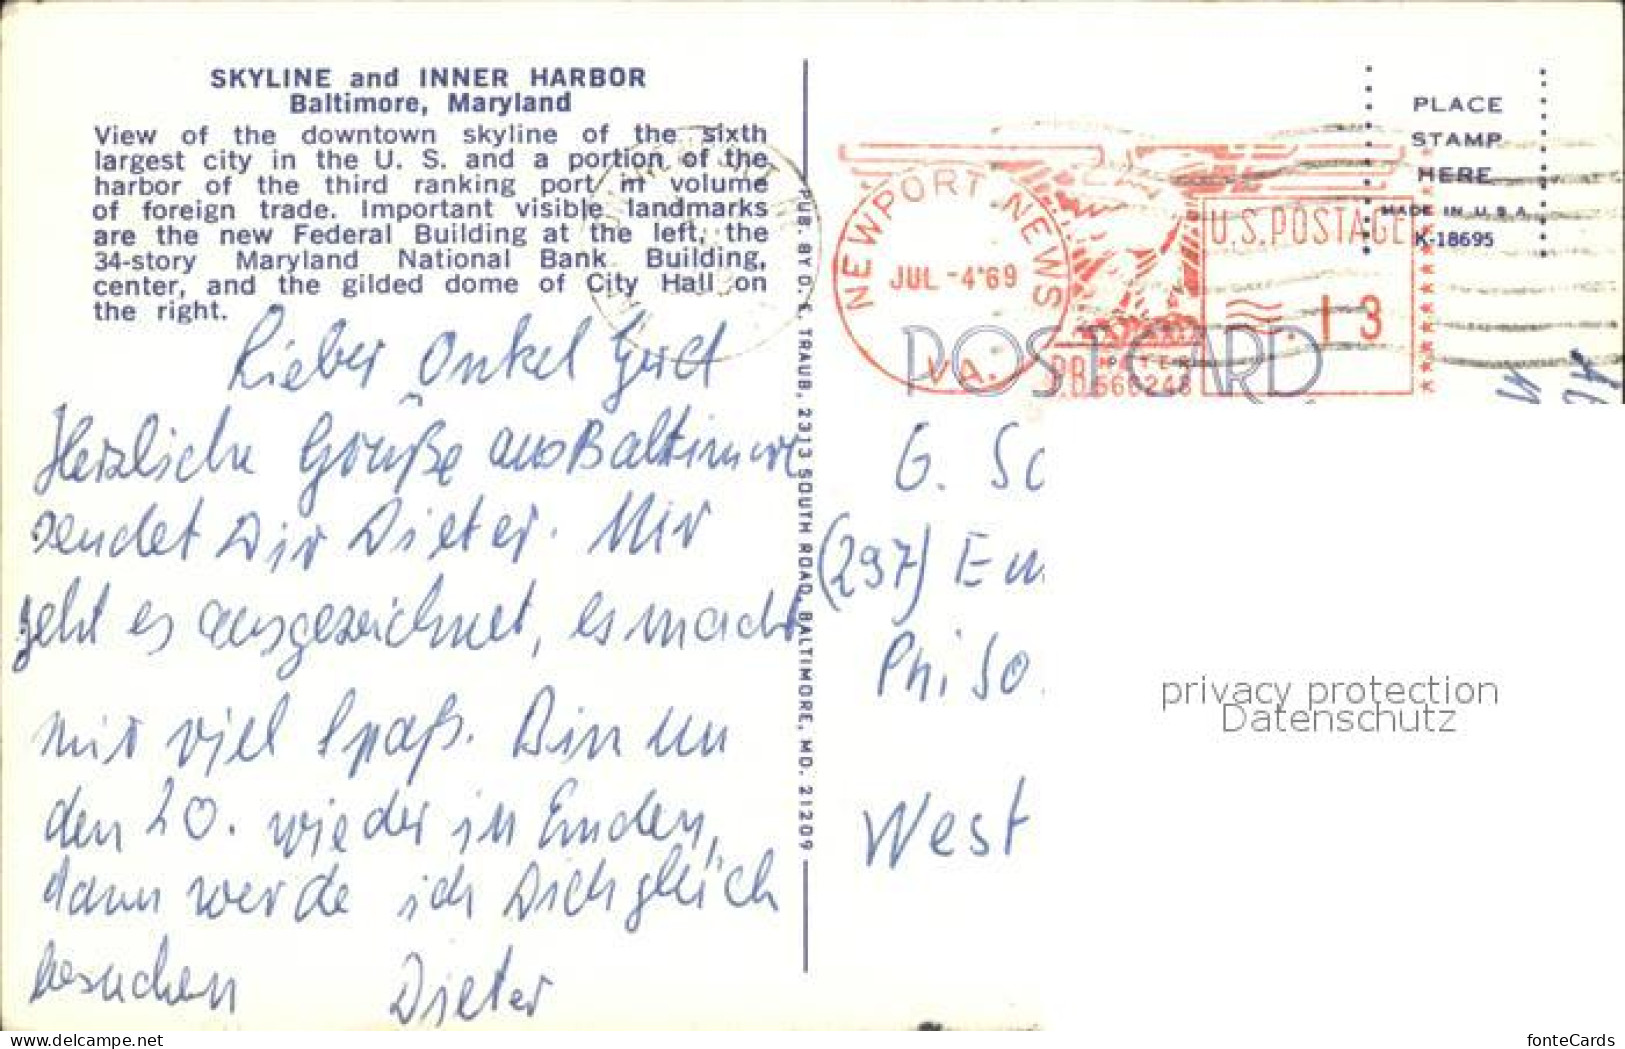 SKYLINE and INNER HARBOR
Baltimore, Maryland
View of the downtown skyline of the sixth
largest city in the U. S. and a portion of the
harbor of the third ranking port in volume
of foreign trade. Important visible landmarks
are the new Federal Building at the left, the
34-story Maryland National Bank Building,
center, and the gilded dome of City Hall on
the right.
Lieber Onkel Gerd
Herzliche Grüße aus Baltimore
sendet Dir Dieter. Mir
geht es ausgezeichnet, es macht
mir viel Spaß. Bin um
den 20. wieder in Emden,
dann werde ich Dich gleich
besuchen Dieter
PUB. BY D. K. TRAUB, 2313 SOUTH ROAD, BALTIMORE, MD. 21209
NEWPORT NEWS
JUL -4'69
VA.
U.S. POSTAGE
.13
P.B. METER
566248
PLACE
STAMP
HERE
MADE IN U.S.A.
K-18695
POST CARD
G. Sc
(297) Em
Philso
West
privacy protection
Datenschutz
www.delcampe.net
fonteCards